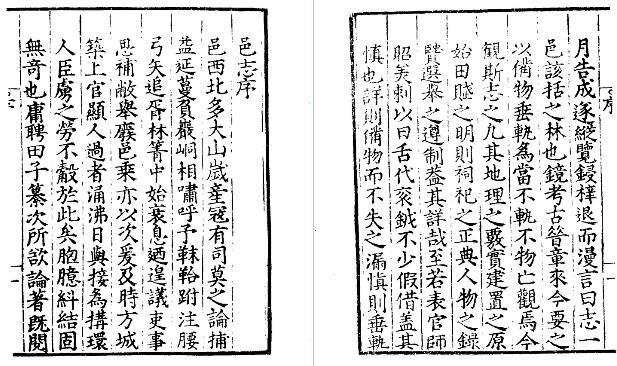 邑志序
邑西北多大山歲産冦有司莫之論捕
益延蔓貧巖峒相嘯呼子靺鞈跗注腰
弓矢追胥林箐中始衰息迺遑議吏事
思補敝舉廢邑乘亦以次爰及時方城
築上官顯人過者涌沸日與接為搆環
人臣虜之勞不觳於此矣胞臆糾結固
無奇也庸聘田子纂次所欲論著既閱
序
一
月告成遂縱覽鋟梓退而漫言曰志一
邑該括之林也鏡考古昔章來今要之
以備物垂軌為當不軌不物亡觀焉今
觀斯志之凡其地理之覈實建置之原
始田賦之明則祠祀之正典人物之錄
賢選舉之遵制益其詳哉至若表官師
昭美刺以曰舌代衮鉞不少假借蓋其
慎也詳則備物而不失之漏慎則垂軌
序
一